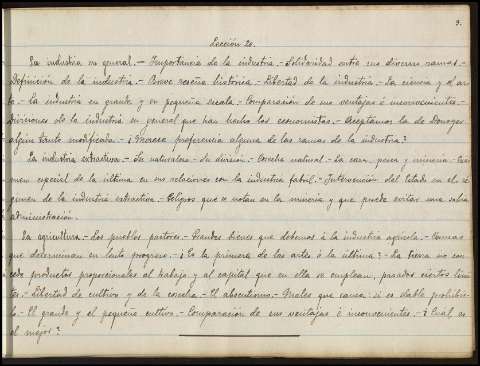 9.
Lección 2a.
La industria en general.- Importancia de la industria.- Solidaridad entre sus diversas ramas.-
Definición de la industria.- Breve reseña histórica.- Libertad de la industria.- La ciencia y el ar-
te.- La industria en grande y en pequeña escala.- Comparación de sus ventajas é inconvenientes.-
Divisiones de la industria en general que han hecho los economistas.- Aceptamos la de Dunoyer
algún tanto modificada.- ¿Merece preferencia alguna de las ramas de la industria?
La industria extractiva.- Su naturaleza.- Su división.- Cosecha natural.- La caza, pesca y minería.-
men especial de la última en sus relaciones con la industria fabril.- Intervención del Estado en el ré-
gimen de la industria extractiva.- Peligros que se notan en la minería y que puede evitar una sabia
administración.
La agricultura.- Los pueblos pastores.- Grandes bienes que debemos á la industria agrícola.- Causas
que determinan su lento progreso.- ¿Es la primera de las artes ó la última?- La tierra no con-
cede productos proporcionales al trabajo y al capital que en ella se emplean, pasados ciertos lími-
tes.- Libertad de cultivo y de la cosecha.- El absentismo.- Males que causa: si es dable prohibir-
lo.- El grande y el pequeño cultivo.- Comparación de sus ventajas é inconvenientes.- ¿Cual es
el mejor?